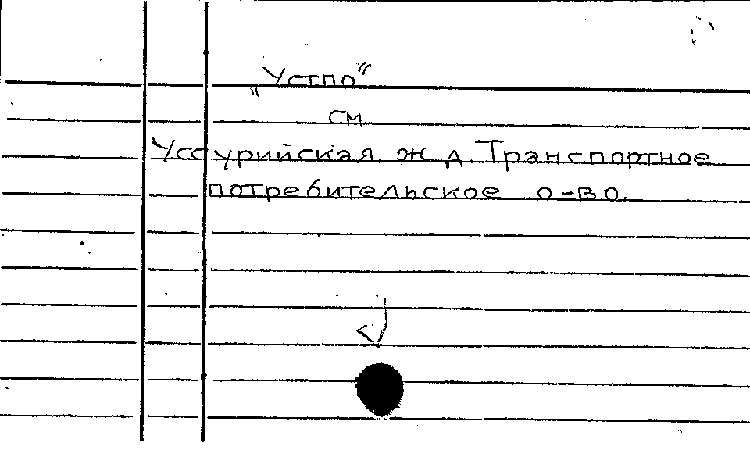 „Устпо“
см
Уссурийская ж д. Транспортное
потребительское о-во.